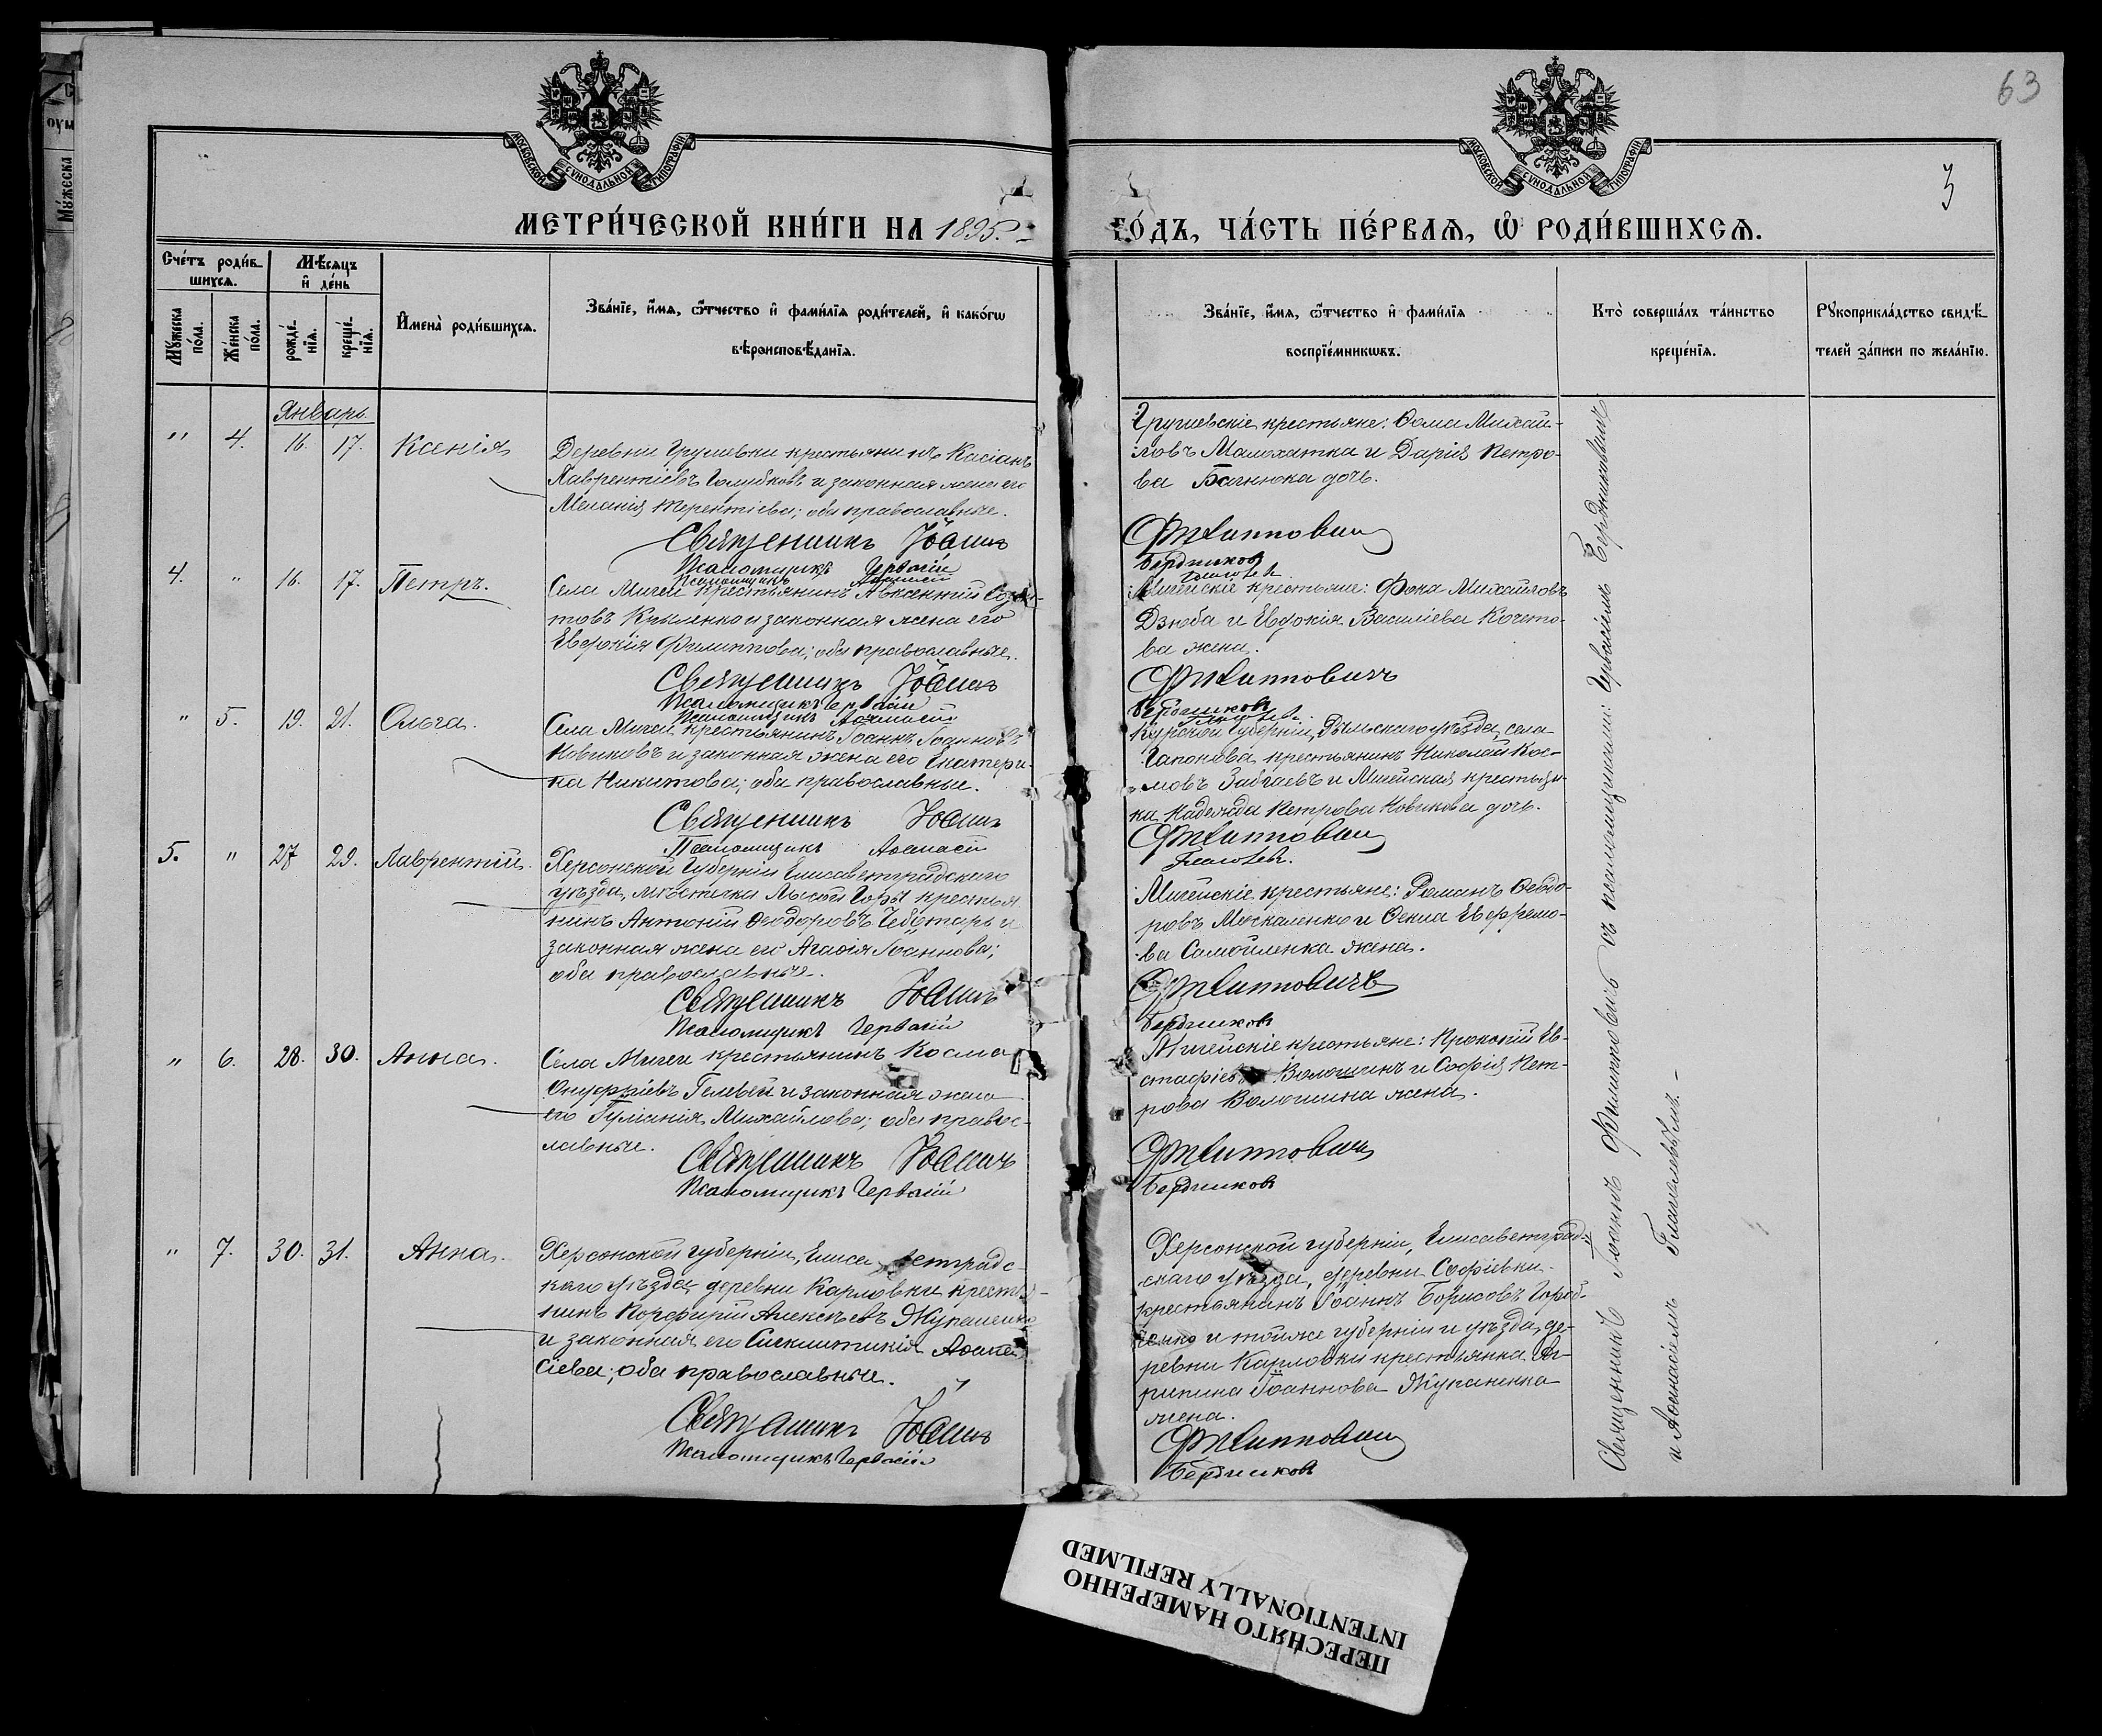 63
3
МОСКОВСКОЙ СУНОДАЛЬНОЙ ТИПОГРАФІИ
МОСКОВСКОЙ СУНОДАЛЬНОЙ ТИПОГРАФІИ
МЕТРИ́ЧЕСКОЙ КНИ́ГИ НА 1895.
ГО́ДЪ, ЧА́СТЬ ПЕ́РВАЯ, Ѡ РОДИ́ВШИХСЯ.
Сче́тъ роди́вшихся.
Мѣсяцъ и де́нь
Му́жеска по́ла.
Же́нска по́ла.
рожде́нія.
креще́нія.
Имена̀ роди́вшихся.
Зва́ніе, и́мя, ѻ́тчество и фами́лія роди́телей, и како́гѡ
вѣроисповѣ́данія.
Зва́ніе, и́мя, ѻ́тчество и фами́лія
воспріе́мникѡвъ.
Кто̀ соверша́лъ та́инство
креще́нія.
Рꙋкоприкла́дство свидѣ́телей за́писи по жела́нію.
Январь.
" 4. 16. 17. Ксенія
Деревни Грушевки крестьянинъ Касіанъ
Лаврентіевъ Голубковъ и законная жена его
Меланія Терентіева; оба православные.
Священникъ Іоаннъ
Псаломщикъ Гервасій
Псаломщикъ Аѳанасій
Грушевскіе крестьяне: Ѳома Михай-
ловъ Малохатка и Дарія Петро-
ва Багнюка дочь.
Филипповичъ
Бердниковъ
Глаголевъ
4. " 16. 17. Петръ.
Села Мигеи крестьянинъ Авксентій
товъ и законная жена его
Евфросинія Филиппова; оба православные.
Священникъ Іоаннъ
Псаломщикъ Гервасій
Псаломщикъ Аѳанасій
Мигейскіе крестьяне: Фока Михайловъ
Дзюба и Евдокія Василіева Кочето-
ва жена.
Филипповичъ
Бердниковъ
Глаголевъ
" 5. 19. 21. Ольга.
Села Мигеи крестьянинъ Іоаннъ Іоанновъ
Новиковъ и законная жена его Екатери-
на Никитова; оба православные.
Священникъ Іоаннъ
Псаломщикъ Аѳанасій
Курской губерніи, Рыльскаго уѣзда, села
Гапонова крестьянинъ Николай Кос-
мовъ и Мигейская крестьян-
ка Надежда Петрова Новикова дочь.
Филипповичъ
Глаголевъ.
5. " 27 29. Лаврентій.
Херсонской губерніи Елисаветградскаго
уѣзда, мѣстечка Лысой Горы крестья
нинъ Антоній Ѳеодоровъ Чеботарь и
законная жена его Агаѳія Іоаннова;
оба православные.
Священникъ Іоаннъ
Псаломщикъ Гервасій
Мигейскіе крестьяне: Романъ Ѳеодо-
ровъ Москаленко и Ѳекла Ефремо-
ва Самойленка жена.
Филипповичъ
Бердниковъ
" 6. 28. 30. Анна.
Села Мигеи крестьянинъ Косма
Онуфріевъ и законная жена
его Іуліанія Михайлова; оба правос-
лавные.
Священникъ Іоаннъ
Псаломщикъ Гервасій
Мигейскіе крестьяне: Прокопій Ев-
стафіевъ Волошинъ и Софія Пет-
рова Волошина жена.
Филипповичъ
Бердниковъ
" 7. 30. 31. Анна.
Херсонской губерніи, Елисаветградс-
каго уѣзда, деревни Карловки крестья-
нинъ Порфирій Алексѣевъ Жупаненко
и законная его Синклитикія Аѳана
сіева; оба православные.
Священникъ Іоаннъ
Псаломщикъ Гервасій
Херсонской губерніи, Елисаветград-
скаго уѣзда, деревни Софіевки
крестьянинъ Іоаннъ Борисовъ
и тойже губерніи и уѣзда, де-
ревни Карловки крестьянка Аг-
рипина Іоаннова Жупаненка
жена.
Филипповичъ
Бердниковъ
Священникъ Іоаннъ Филипповичъ съ псаломщиками: Гервасіемъ Бердниковымъ
и Аѳанасіемъ Глаголевымъ.
ПЕРЕСНЯТО НАМЕРЕННО
INTENTIONALLY REFILMED